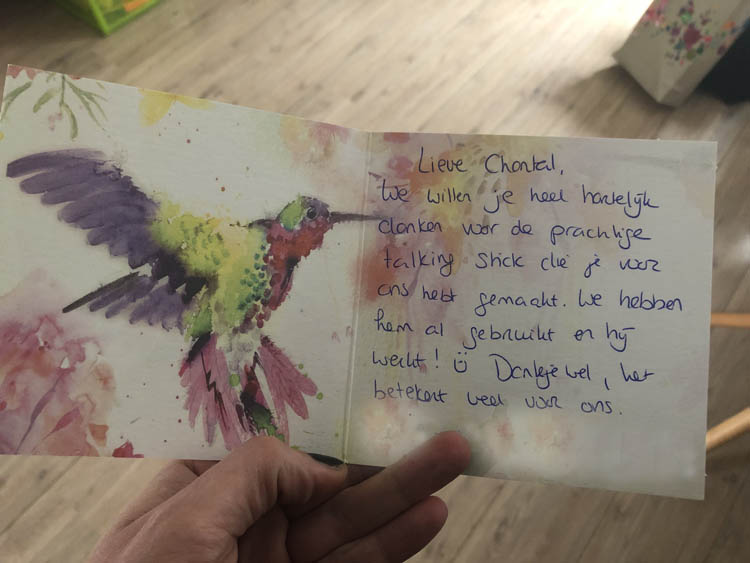 Lieve Chantal,
We willen je heel hartelijk
danken voor de prachtige
talking stick die je voor
ons hebt gemaakt. We hebben
hem al gebruikt en hij
werkt! ☺ Dankjewel, het
betekent veel voor ons.